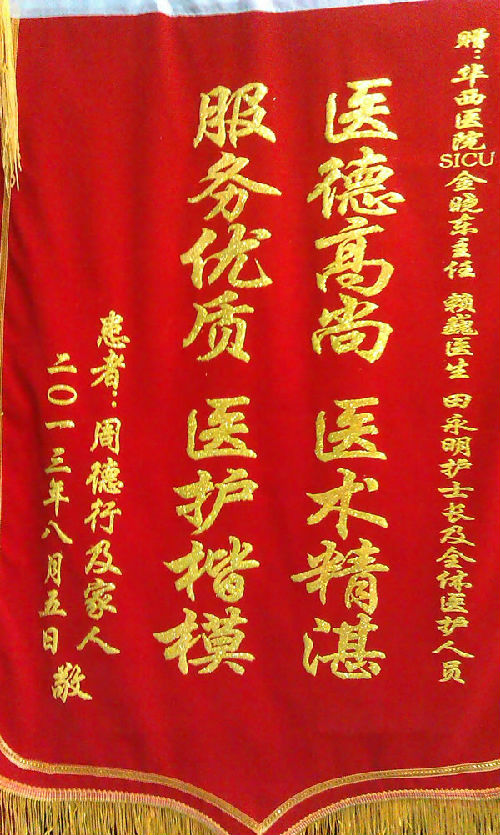 赠：华西医院SICU金晓东主任 赖巍医生 田永明护士长及全体医护人员
医德高尚 医术精湛
服务优质 医护楷模
患者：周德行及家人
二〇一三年八月五日 敬